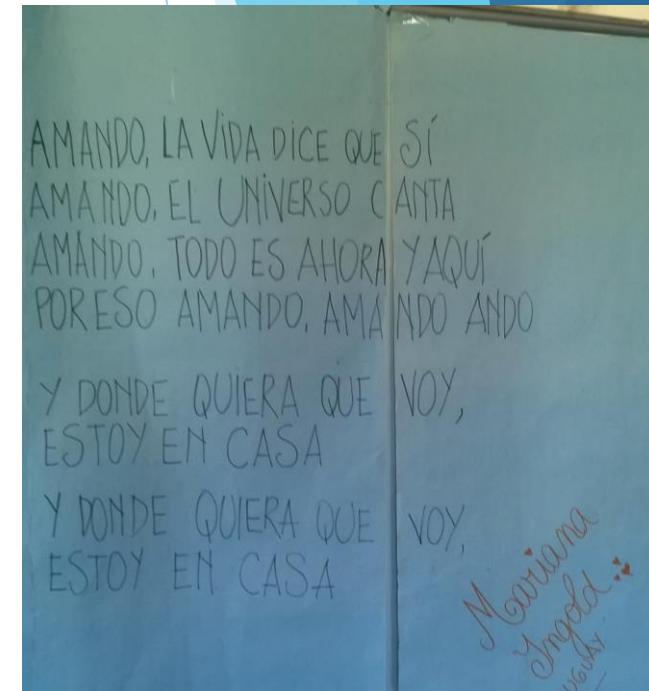 AMANDO, LA VIDA DICE QUE SÍ
AMANDO, EL UNIVERSO CANTA
AMANDO, TODO ES AHORA Y AQUÍ
POR ESO AMANDO, AMANDO ANDO
Y DONDE QUIERA QUE VOY,
ESTOY EN CASA
Y DONDE QUIERA QUE VOY,
ESTOY EN CASA
Mariana
Ingold